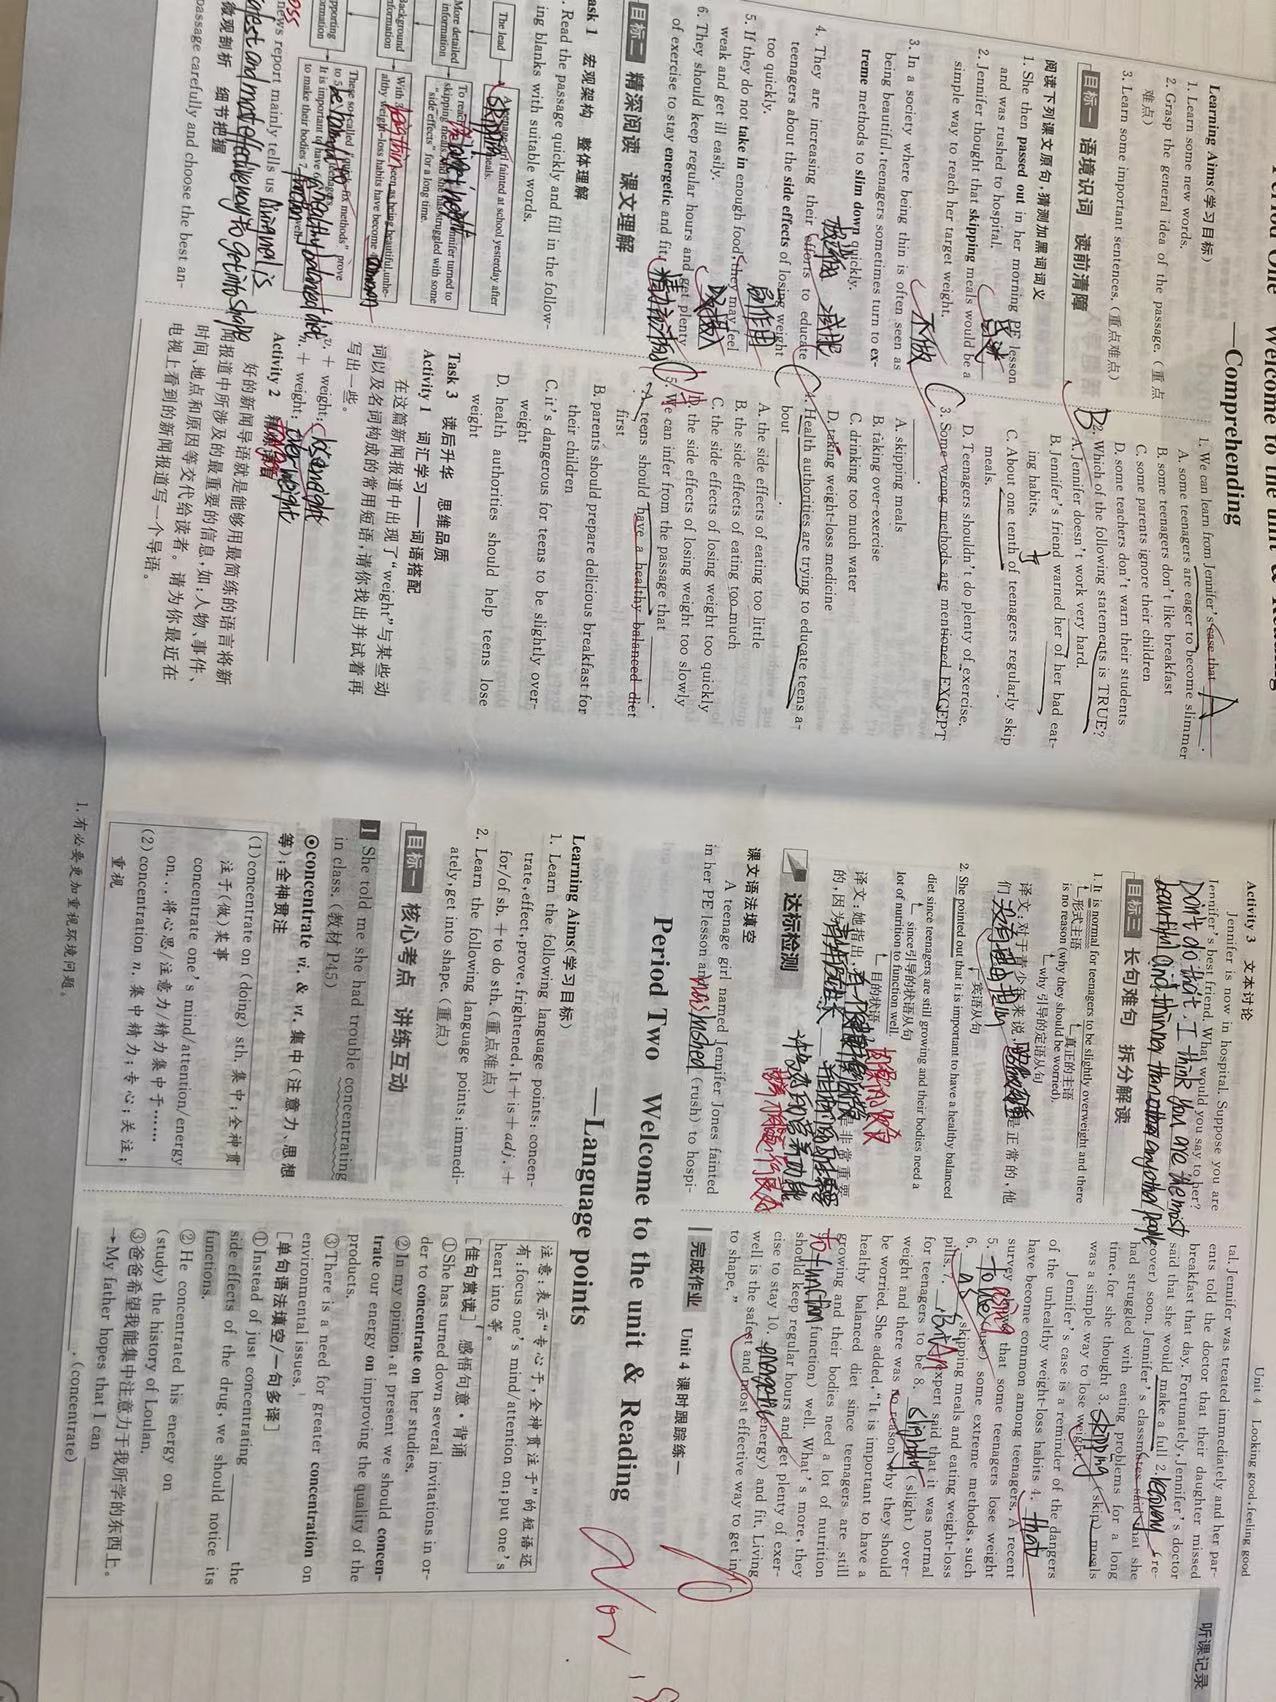 Period One Welcome to the unit & Reading
—Comprehending
Learning Aims(学习目标)
1. Learn some new words.
2. Grasp the general idea of the passage. (重点
难点)
3. Learn some important sentences. (重点难点)
目标一 语境识词 读前清障
阅读下列课文原句,猜测加黑词词义
1. She then passed out in her morning PE lesson
and was rushed to hospital.
2. Jennifer thought that skipping meals would be a
simple way to reach her target weight.
3. In a society where being thin is often seen as
being beautiful, teenagers sometimes turn to ex-
treme methods to slim down quickly.
4. They are increasing their efforts to educate
teenagers about the side effects of losing weight
too quickly.
副作用
5. If they do not take in enough food, they may feel
weak and get ill easily.
6. They should keep regular hours and get plenty
of exercise to stay energetic and fit.
目标二 精深阅读 课文理解
Task 1 宏观架构 整体理解
. Read the passage quickly and fill in the follow-
ing blanks with suitable words.
The lead
fainted at school yesterday after
skipping meals.
More detailed
information
skipping meals
"side effects" for a long time.
Background
information
een as being beautiful, unhe-
althy weight-loss habits have become common
These so-called "quick-fix methods" prove
to be harmful to teenagers.
It is important to have a healthy balanced diet
to make their bodies function well.
news report mainly tells us
微观剖析 细节把握
passage carefully and choose the best an-
1. We can learn from Jennifer's case that A .
A. some teenagers are eager to become slimmer
B. some teenagers don't like breakfast
C. some parents ignore their children
D. some teachers don't warn their students
B 2. Which of the following statements is TRUE?
A. Jennifer doesn't work very hard.
B. Jennifer's friend warned her of her bad eat-
ing habits.
C. About one tenth of teenagers regularly skip
meals.
D. Teenagers shouldn't do plenty of exercise.
C 3. Some wrong methods are mentioned EXCEPT
.
A. skipping meals
B. taking over-exercise
C. drinking too much water
D. taking weight-loss medicine
C 4. Health authorities are trying to educate teens a-
bout .
A. the side effects of eating too little
B. the side effects of eating too much
C. the side effects of losing weight too quickly
D. the side effects of losing weight too slowly
5. We can infer from the passage that .
A. teens should have a healthy balanced diet
first
B. parents should prepare delicious breakfast for
their children
C. it's dangerous for teens to be slightly over-
weight
D. health authorities should help teens lose
weight
Task 3 读后升华 思维品质
Activity 1 词汇学习——词语搭配
在这篇新闻报道中出现了“weight”与某些动
词以及名词构成的常用短语,请你找出并试着再
写出一些。
+ weight: lose weight
+ weight: over weight
Activity 2
好的新闻导语就是能够用最简练的语言将新
闻报道中所涉及的最重要的信息,如:人物、事件、
时间、地点和原因等交代给读者。请为你最近在
电视上看到的新闻报道写一个导语。
Unit 4 Looking good, feeling good
听课记录
Activity 3 文本讨论
Jennifer is now in hospital. Suppose you are
Jennifer's best friend. What would you say to her?
Don't do that. I think you are the most
beautiful and thinner than other any other people
目标三 长句难句 拆分解读
1. It is normal for teenagers to be slightly overweight and there
形式主语 真正的主语
is no reason (why they should be worried).
why 引导的定语从句
译文:对于青少年来说, 是正常的,他
们没有理由担心
2. She pointed out that it is important to have a healthy balanced
宾语从句
diet since teenagers are still growing and their bodies need a
since引导的状语从句
lot of nutrition to function well.
目的状语
译文:她指出, 是非常重要
的,因为
达标检测
课文语法填空
A teenage girl named Jennifer Jones fainted
in her PE lesson and 1. was rushed (rush) to hospi-
tal. Jennifer was treated immediately and her par-
ents told the doctor that their daughter missed
breakfast that day. Fortunately, Jennifer's doctor
said that she would make a full 2. recovery (re-
cover) soon. Jennifer's classmates said that she
had struggled with eating problems for a long
time, for she thought 3. skipping (skip) meals
was a simple way to lose weight.
Jennifer's case is a reminder of the dangers
of the unhealthy weight-loss habits 4. that
have become common among teenagers. A recent
survey 
that some teenagers lose weight
5. (use) some extreme methods, such
6. as skipping meals and eating weight-loss
pills. 7. An expert said that it was normal
for teenagers to be 8. slightly (slight) over-
weight and there was no reason why they should
be worried. She added, "It is important to have a
healthy balanced diet since teenagers are still
growing and their bodies need a lot of nutrition
to function (function) well. What's more, they
should keep regular hours and get plenty of exer-
cise to stay 10. energetic (energy) and fit. Living
well is the safest and most effective way to get in-
to shape."
完成作业 Unit 4 课时跟踪练一
Period Two Welcome to the unit & Reading
—Language points
Learning Aims(学习目标)
1. Learn the following language points: concen-
trate, effect, prove, frightened, It+is+adj. +
for/of sb. +to do sth. (重点难点)
2. Learn the following language points: immedi-
ately, get into shape. (重点)
目标一 核心考点 讲练互动
1 She told me she had trouble concentrating
in class. (教材 P45)
⊙concentrate vi. & vt. 集中(注意力、思想
等);全神贯注
(1)concentrate on (doing) sth. 集中;全神贯
注于(做)某事
concentrate one's mind/attention/energy
on... 将心思/注意力/精力集中于……
(2)concentration n. 集中精力;专心;关注;
重视
注意:表示“专心于,全神贯注于”的短语还
有:focus one's mind/attention on;put one's
heart into 等。
[佳句赏读] 感悟句意·背诵
①She has turned down several invitations in or-
der to concentrate on her studies.
②In my opinion, at present we should concen-
trate our energy on improving the quality of the
products.
③There is a need for greater concentration on
environmental issues.¹
[单句语法填空/一句多译]
①Instead of just concentrating the
side effects of the drug, we should notice its
functions.
②He concentrated his energy on
(study) the history of Loulan.
③爸爸希望我能集中注意力于我所学的东西上。
→My father hopes that I can
. (concentrate)
1. 有必要更加重视环境问题。